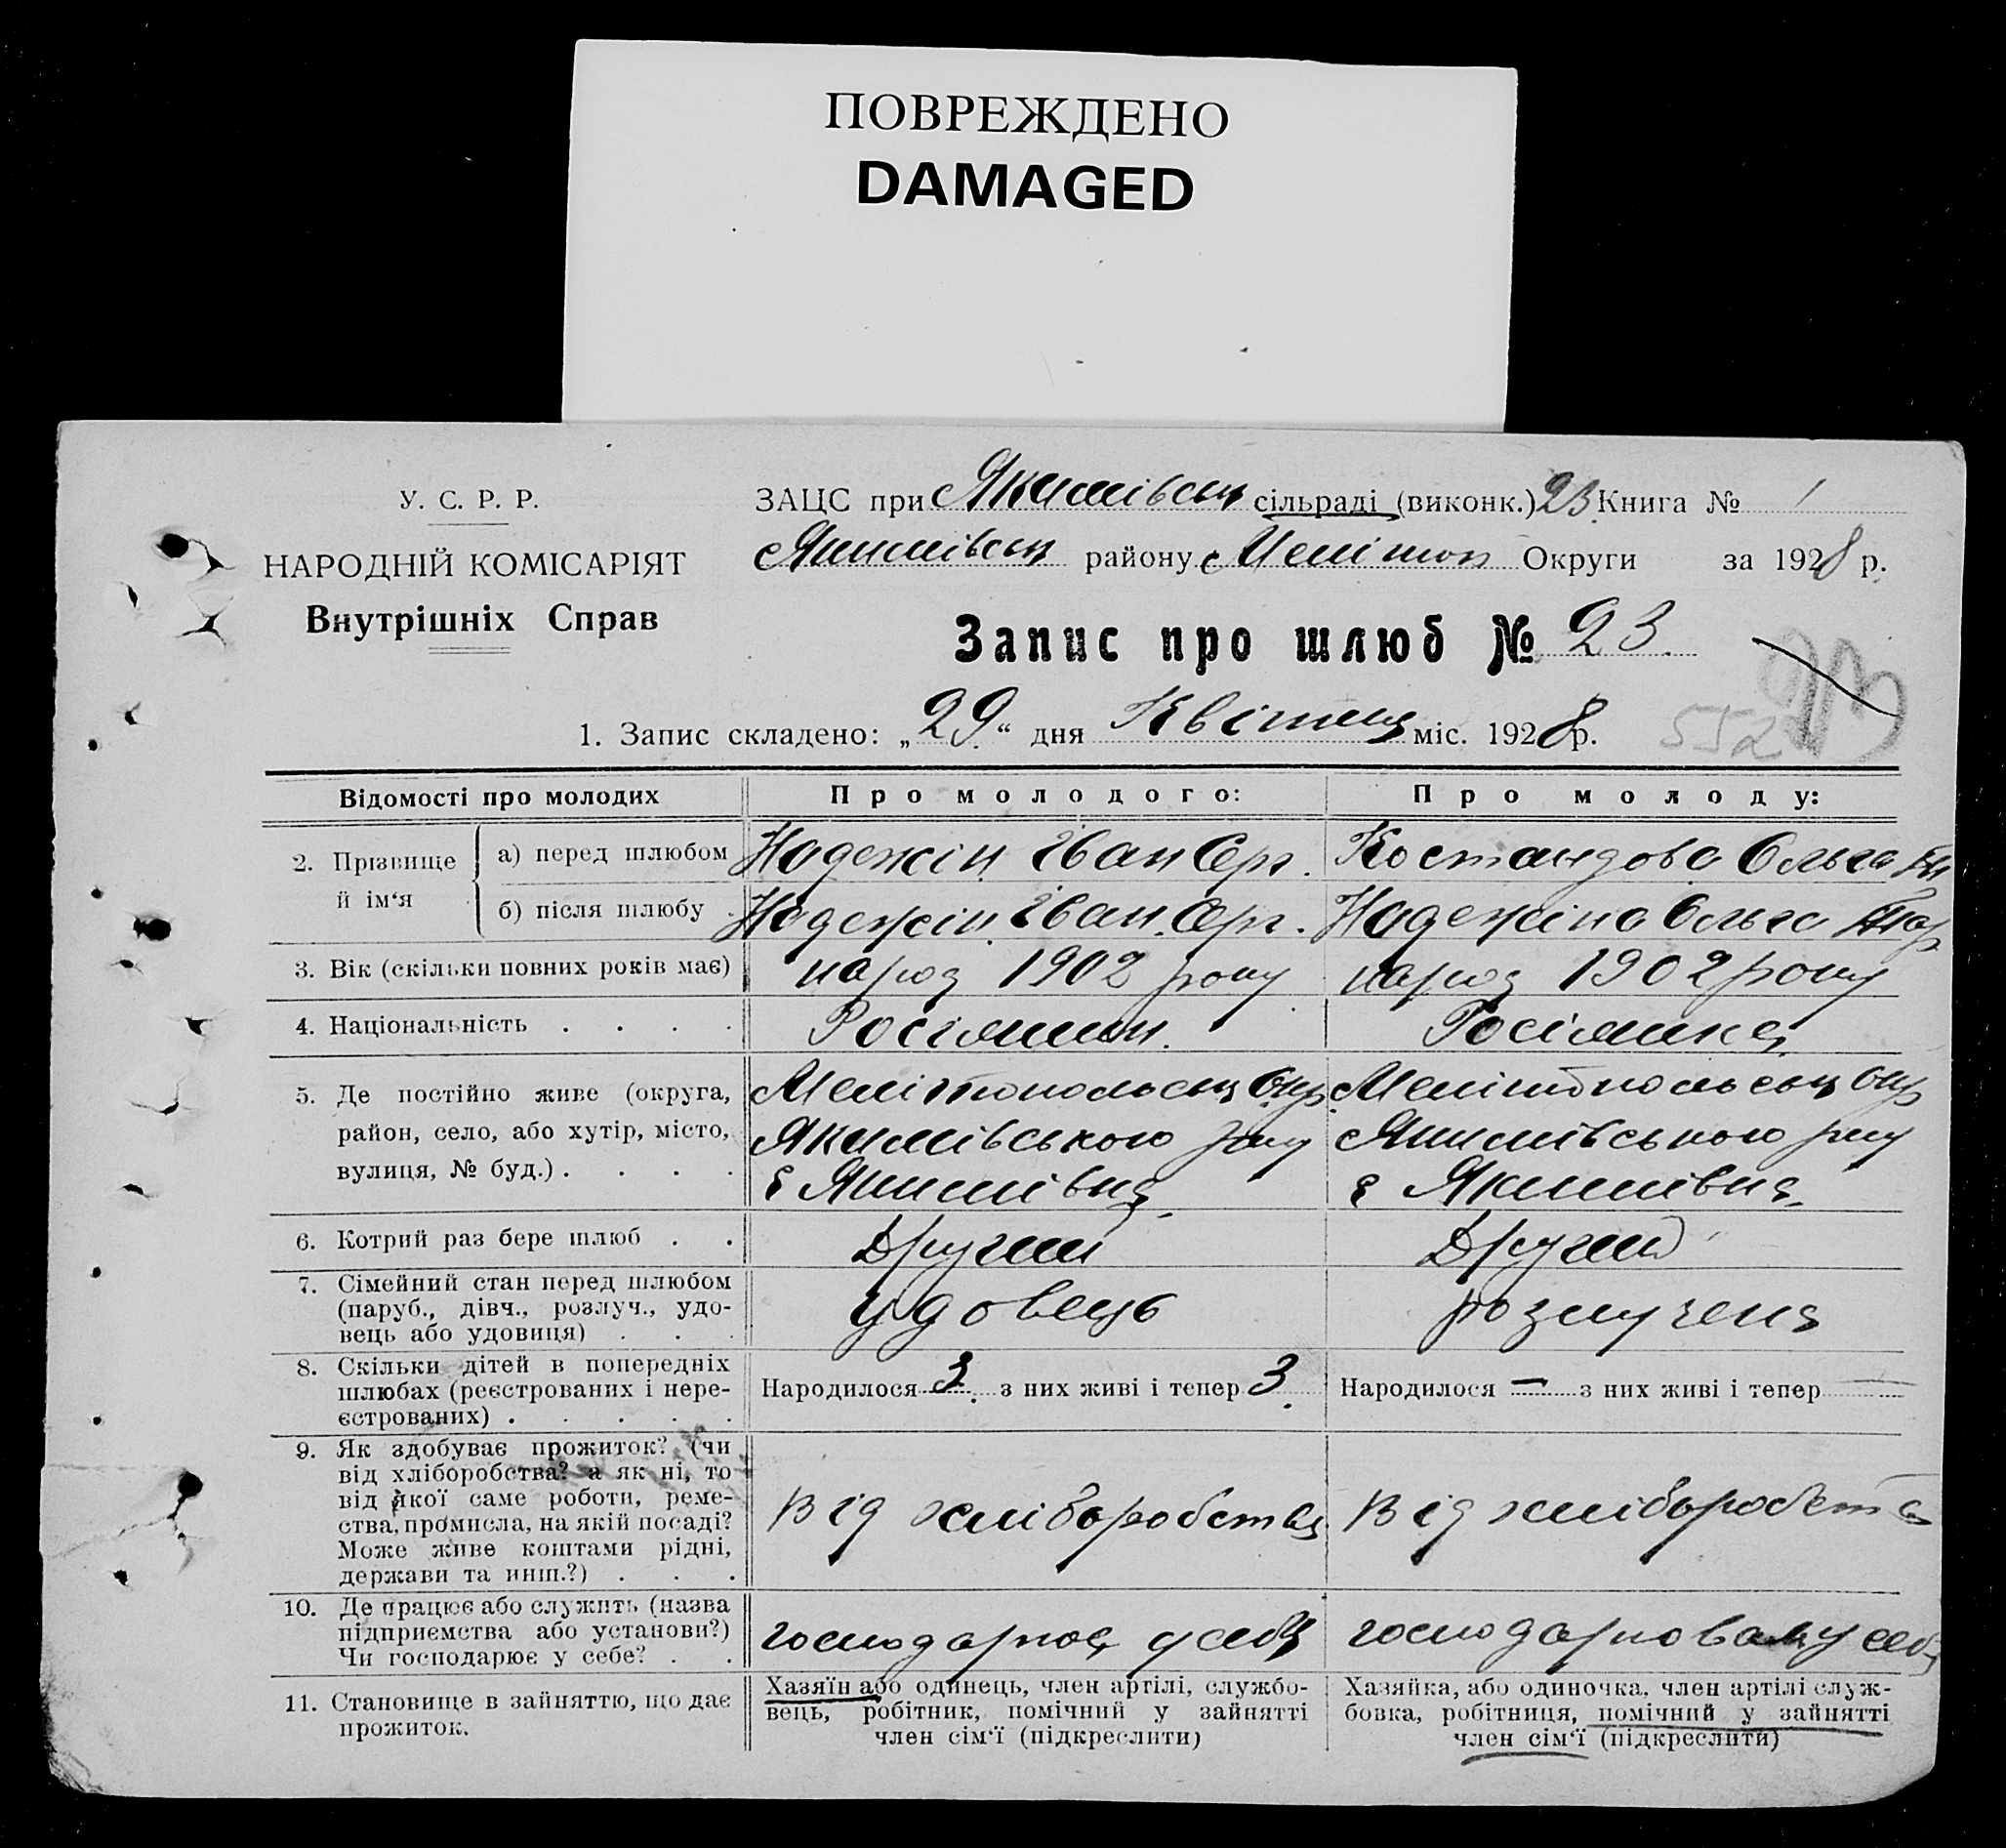 ПОВРЕЖДЕНО
DAMAGED
У. С. Р. Р.
НАРОДНІЙ КОМІСАРІЯТ
Внутрішніх Справ
ЗАЦС при Якимівськ сільраді (виконк.) 23 Книга № 1
Якимівськ району Мелітоп Округи за 1928 р.
Запис про шлюб № 23.
552
1. Запис складено: „29“ дня Квітня міс. 1928 р.
Відомості про молодих
Про молодого:
Про молоду:
2. Прізвище й ім‘я
а) перед шлюбом
Надежін Іван Серг.
Костандова Ольга
б) після шлюбу
Надежін Іван Серг.
Надежіна Ольга
3. Вік (скільки повних років має)
народ 1902 року
народ 1902 року
4. Національність . . . .
Росіянин.
Росіянка
5. Де постійно живе (округа,
район, село, або хутір, місто,
вулиця, № буд.) . . . .
Мелітопольськ Окр
Якимівського р-ну
с Якимівка
Мелітопольськ Окр
Якимівського р-ну
с Якимівка
6. Котрий раз бере шлюб . .
Другий
Другий
7. Сімейний стан перед шлюбом
(паруб., дівч., розлуч., удо-
вець або удовиця) . . .
удовець
розлучена
8. Скільки дітей в попередніх
шлюбах (реєстрованих і нере-
єстрованих) . . . . .
Народилося 3 з них живі і тепер 3
Народилося — з них живі і тепер —
9. Як здобуває прожиток? (чи
від хліборобства? а як ні, то
від якої саме роботи, реме-
ства, промисла, на якій посаді?
Може живе коштами рідні,
держави та инш.?) . . .
Від хліборобства
Від хліборобства
10. Де працює або служить (назва
підприємства або установи?)
Чи господарює у себе? . .
господарює у себе
11. Становище в зайняттю, що дає
прожиток.
Хазяїн або одинець, член артілі, службо-
вець, робітник, помічний у зайнятті
член сім‘ї (підкреслити)
Хазяйка, або одиночка, член артілі служ-
бовка, робітниця, помічний у зайнятті
член сім‘ї (підкреслити)